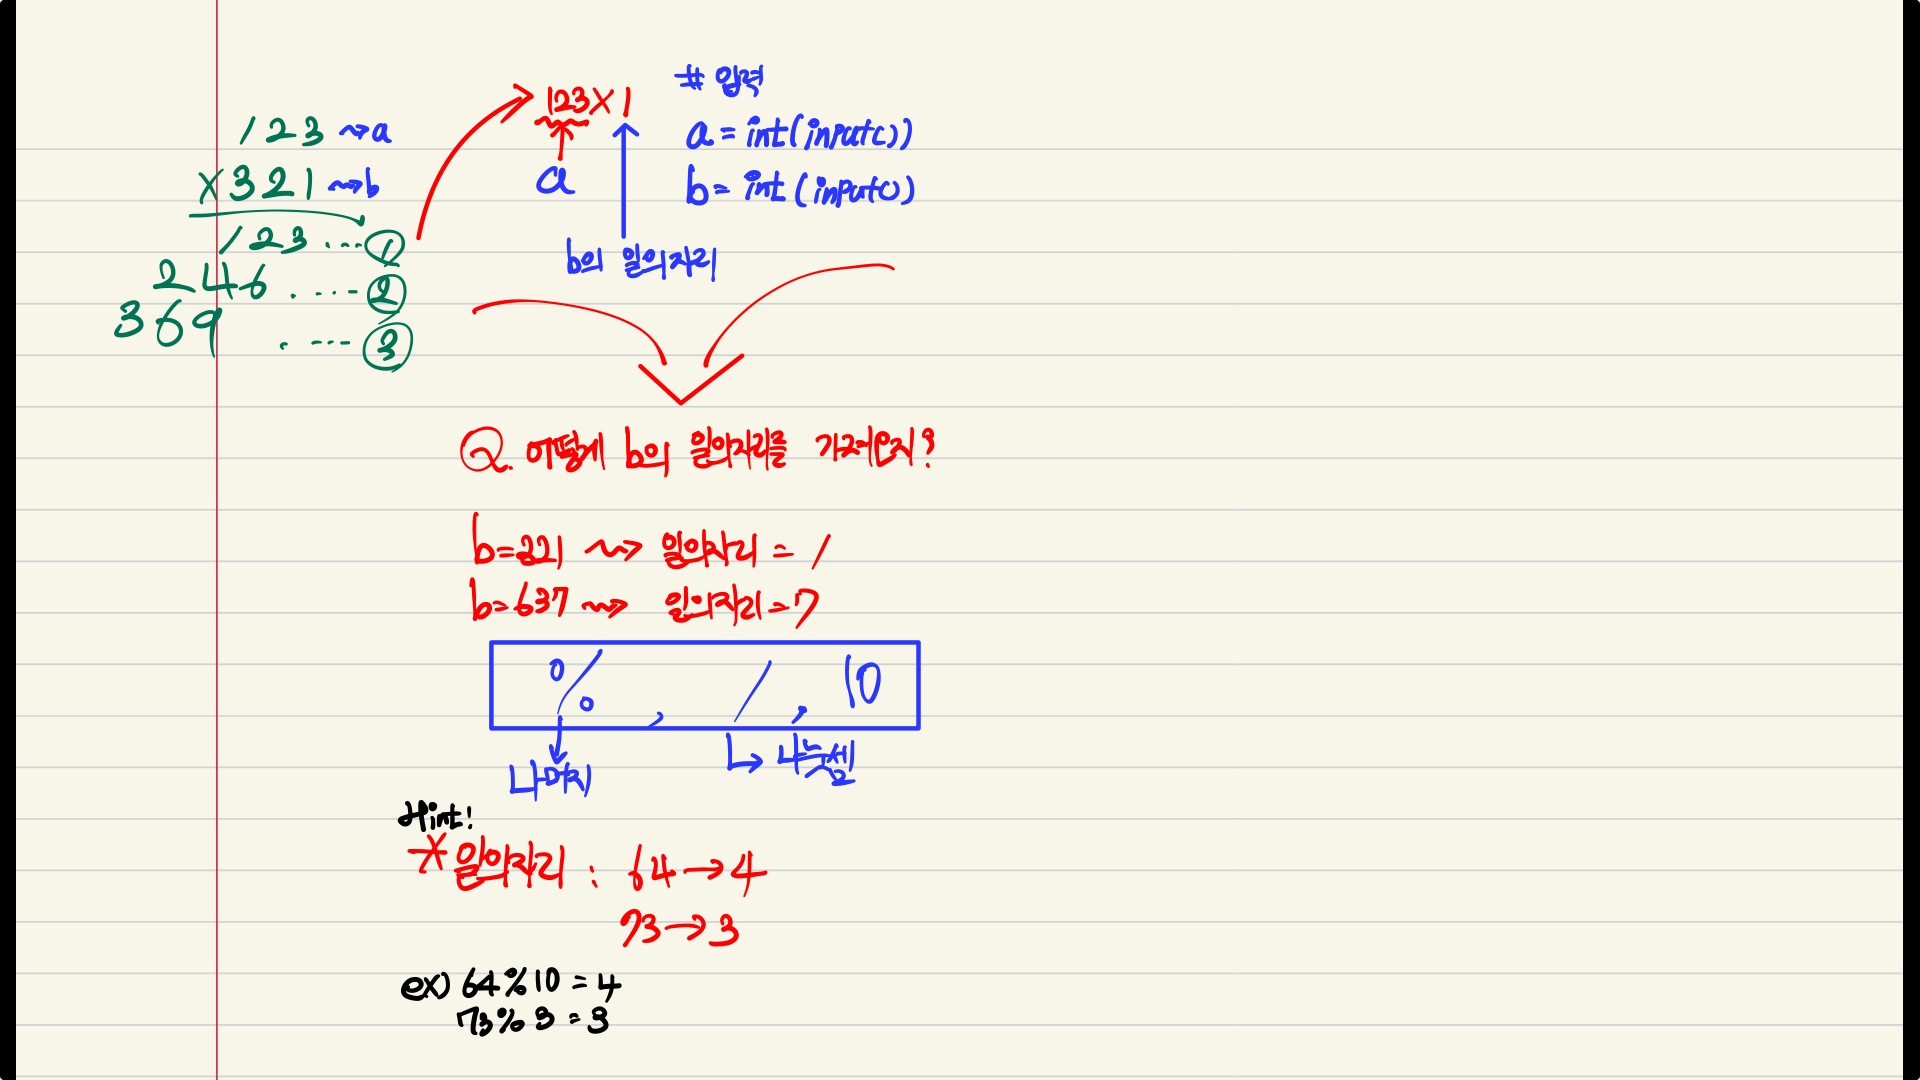 123 ⇝ a
×321 ⇝ b
123 ···· ①
246 ····· ②
369 ····· ③
123×1
a
b의 일의자리
# 입력
a = int(input())
b = int(input())
Q. 어떻게 b의 일의자리를 가져오지?
b=321 ⇝ 일의자리 = 1
b=637 ⇝ 일의자리=7
% , / , 10
나머지
↳ 나눗셈
Hint!
* 일의자리 : 64→4
73→3
ex) 64%10 = 4
73% 3 = 3